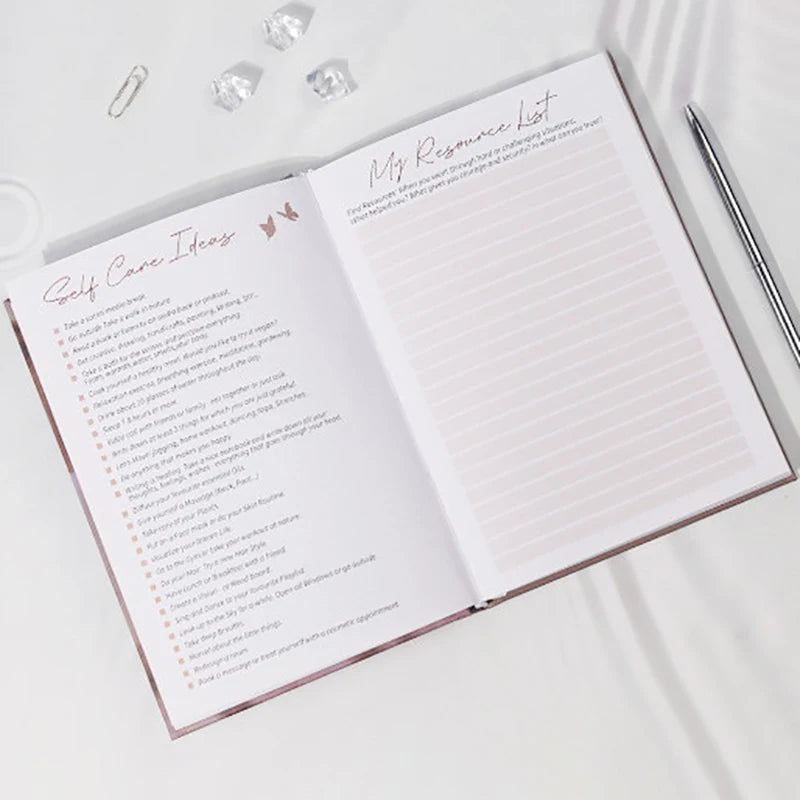 Self Care Ideas
Take a social media break
Go outside Take a walk in nature
Read a Book or listen to an audio Book or podcast.
Get creative, drawing, handicrafts, painting, Writing, etc..
Take a bath for the senses and perceive everything.
Foam, warmth, water, smells, your body.
Cook yourself a healthy meal. Would you like to try a vegan?
Relaxation exercise, Breathing exercise, meditation, gardening.
Drink about 10 glasses of water throughout the day.
Sleep 7.8 hours or more.
with friends or family - eat together or just talk.
Write down at least 3 things for which you are just grateful.
Let's Move! Jogging, home workout, dancing, Yoga, Stretches.
Do anything that makes you happy
Writing is healing. Take a nice notebook and write down all your
thoughts, feelings, wishes - everything that goes through your head.
Diffuse your favourite essential Oils.
Give yourself a Massage (Neck, Feet...)
Take care of your Plants.
Put on a Face mask or do your Skin Routine.
Visualize your Dream Life.
Go to the Gym or take your workout at nature.
Do your Hair. Try a new Hair Style.
Have Lunch or Breakfast with a Friend.
Create a Vision - or Mood board.
Sing and Dance to your favourite Playlist.
Look up to the Sky for a while. Open all Windows or go outside
Take deep Breaths.
Marvel about the little things.
Redesign a room.
Book a message or treat yourself with a cosmetic appointment.
My Resource List
Find Resources: When you went through hard or challenging situations,
What helped you? What gives you courage and security? In what can you trust?